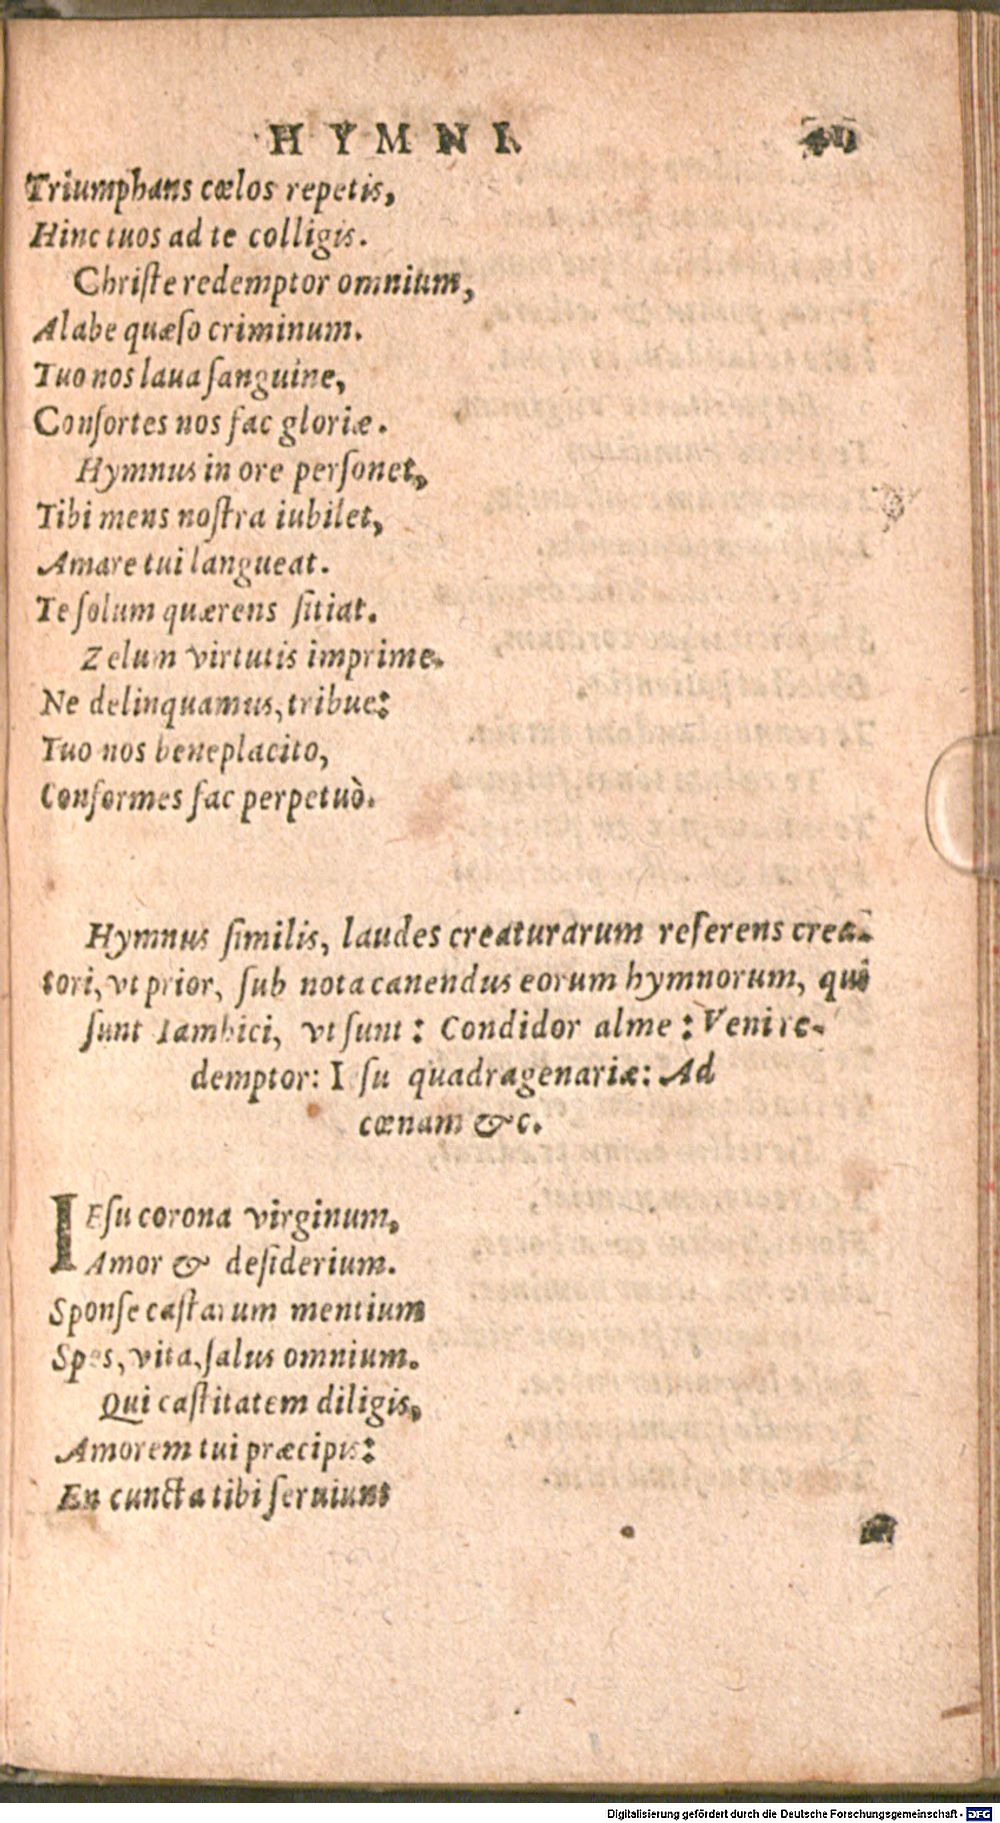 HYMNI.
Triumphans cœlos repetis,
Hinc tuos ad te colligis.
Christe redemptor omnium,
A labe quæso criminum.
Tuo nos laua sanguine,
Consortes nos fac gloriæ.
Hymnus in ore personet,
Tibi mens nostra iubilet,
Amare tui langueat.
Te solum quærens sitiat.
Zelum virtutis imprime.
Ne delinquamus, tribue:
Tuo nos beneplacito,
Conformes fac perpetuò.
Hymnus similis, laudes creaturarum referens crea-
tori, vt prior, sub nota canendus eorum hymnorum, qui
sunt Iambici, vt sunt: Condidor alme: Veni re-
demptor: I su quadragenariæ: Ad
cœnam &c.
IEsu corona virginum,
Amor & desiderium.
Sponse castarum mentium
Spes, vita, salus omnium.
Qui castitatem diligis,
Amorem tui præcipis:
En cuncta tibi seruiunt
Digitalisierung gefördert durch die Deutsche Forschungsgemeinschaft - DFG